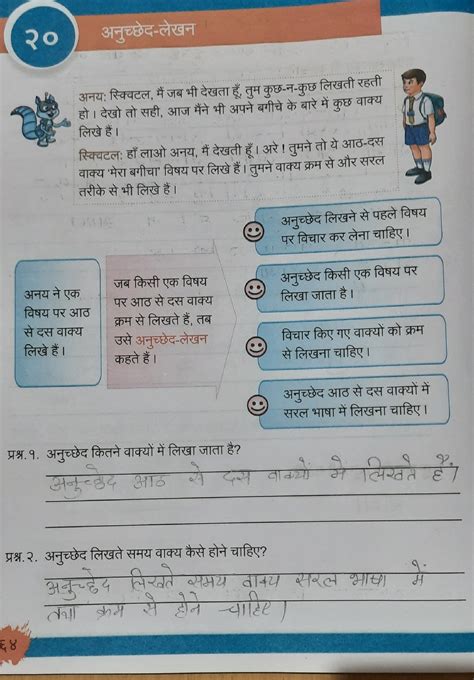 २०
अनुच्छेद-लेखन
अनय: स्क्विटल, मैं जब भी देखता हूँ, तुम कुछ-न-कुछ लिखती रहती
हो। देखो तो सही, आज मैंने भी अपने बगीचे के बारे में कुछ वाक्य
लिखे हैं।
स्क्विटल: हाँ लाओ अनय, मैं देखती हूँ। अरे ! तुमने तो ये आठ-दस
वाक्य मेरा बगीचा विषय पर लिखे हैं। तुमने वाक्य क्रम से और सरल
तरीके से भी लिखे हैं।
अनय ने एक
विषय पर आठ
से दस वाक्य
लिखे हैं।
जब किसी एक विषय
पर आठ से दस वाक्य
क्रम से लिखते हैं, तब
उसे अनुच्छेद-लेखन
कहते हैं।
अनुच्छेद लिखने से पहले विषय
पर विचार कर लेना चाहिए।
अनुच्छेद किसी एक विषय पर
लिखा जाता है।
विचार किए गए वाक्यों को क्रम
से लिखना चाहिए।
अनुच्छेद आठ से दस वाक्यों में
सरल भाषा में लिखना चाहिए।
प्रश्न.१. अनुच्छेद कितने वाक्यों में लिखा जाता है?
अनुच्छेद आठ से दस वाक्यों मे लिखते है।
प्रश्न.२. अनुच्छेद लिखते समय वाक्य कैसे होने चाहिए?
अनुच्छेद लिखते समय वाक्य सरल भाषा में
तथा क्रम से होने चाहिए।
६४